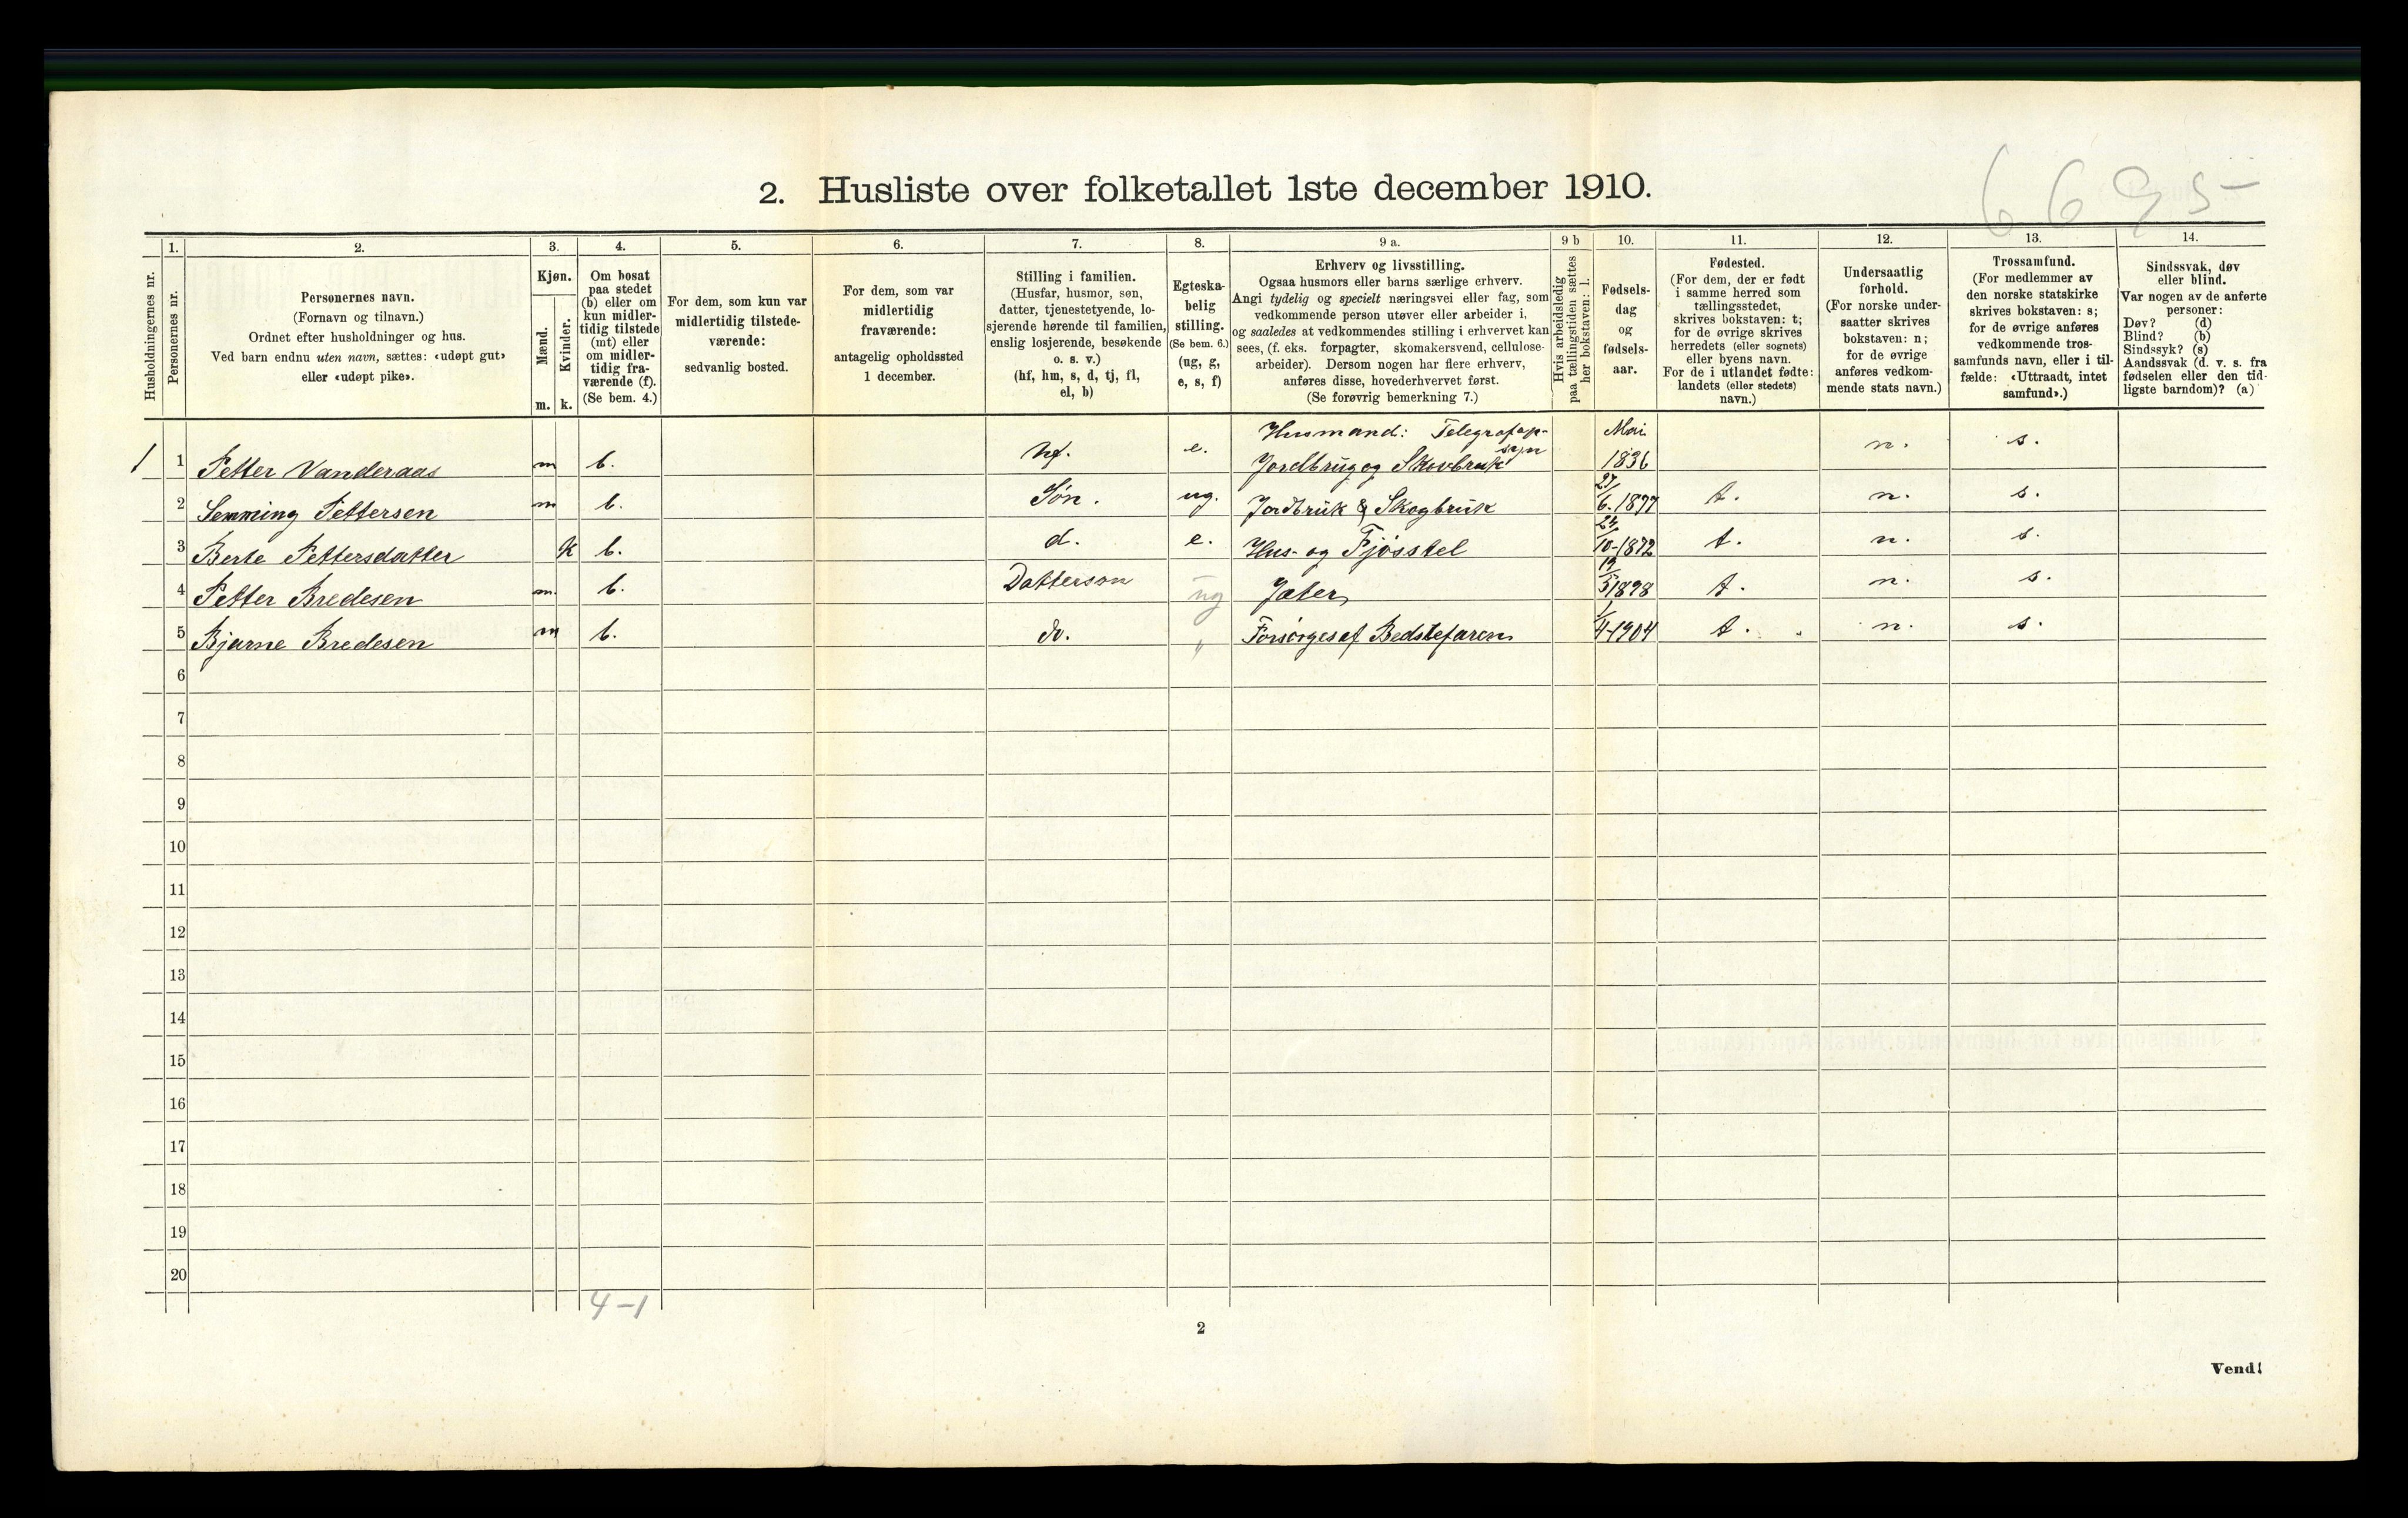 6695-
2. Husliste over folketallet 1ste december 1910.
Husholdningernes nr.
1.
Personernes nr.
2.
Personernes navn.
(Fornavn og tilnavn.)
Ordnet efter husholdninger og hus.
Ved barn endnu uten navn, sættes: «udøpt gut»
eller «udøpt pike».
3.
Kjøn.
Mænd.
Kvinder.
m. k.
4.
Om bosat
paa stedet
(b) eller om
kun midler-
tidig tilstede
(mt) eller
om midler-
tidig fra-
værende (f).
(Se bem. 4.)
5.
For dem, som kun var
midlertidig tilstede-
værende:
sedvanlig bosted.
6.
For dem, som var
midlertidig
fraværende:
antagelig opholdssted
1 december.
7.
Stilling i familien.
(Husfar, husmor, søn,
datter, tjenestetyende, lo-
sjerende hørende til familien,
enslig losjerende, besøkende
o. s. v.)
(hf, hm, s, d, tj, fl,
el, b)
8.
Egteska-
belig
stilling.
(Se bem. 6.)
(ug, g,
e, s, f)
9 a.
Erhverv og livsstilling.
Ogsaa husmors eller barns særlige erhverv.
Angi tydelig og specielt næringsvei eller fag, som
vedkommende person utøver eller arbeider i,
og saaledes at vedkommendes stilling i erhvervet kan
sees, (f. eks. forpagter, skomakersvend, cellulose-
arbeider). Dersom nogen har flere erhverv,
anføres disse, hovederhvervet først.
(Se forøvrig bemerkning 7.)
9 b
Hvis arbeidsledig
paa tællingstiden sættes
her bokstaven: l.
10.
Fødsels-
dag
og
fødsels-
aar.
11.
Fødested.
(For dem, der er født
i samme herred som
tællingsstedet,
skrives bokstaven: t;
for de øvrige skrives
herredets (eller sognets)
eller byens navn.
For de i utlandet fødte:
landets (eller stedets)
navn.)
12.
Undersaatlig
forhold.
(For norske under-
saatter skrives
bokstaven: n;
for de øvrige
anføres vedkom-
mende stats navn.)
13.
Trossamfund.
(For medlemmer av
den norske statskirke
skrives bokstaven: s;
for de øvrige anføres
vedkommende tros-
samfunds navn, eller i til-
fælde: «Uttraadt, intet
samfund».)
14.
Sindssvak, døv
eller blind.
Var nogen av de anførte
personer:
Døv? (d)
Blind? (b)
Sindssyk? (s)
Aandssvak (d. v. s. fra
fødselen eller den tid-
ligste barndom)? (a)
1 1 Petter Vanderaas m b. hf. e. Husmand: Telegrafop-
syn
Jordbrug og Skovbruk Mai 1836 n. s.
2 Semming Pettersen m b. Søn. ug. Jordbruk & Skogbruk 27/6-1877 t. n. s.
3 Berte Pettersdatter k b. d. e. Hus- og Fjösstel 24/10-1872 t. n. s.
4 Petter Bredesen m. b. Datterson ug Jæter 19/5 1898 t. n. s.
5 Bjarne Bredesen m b. do. " Forsörges af Bedstefaren 1/4-1904 t. n. s.
6
7
8
9
10
11
12
13
14
15
16
17
18
19
20
4-1
2
Vend!